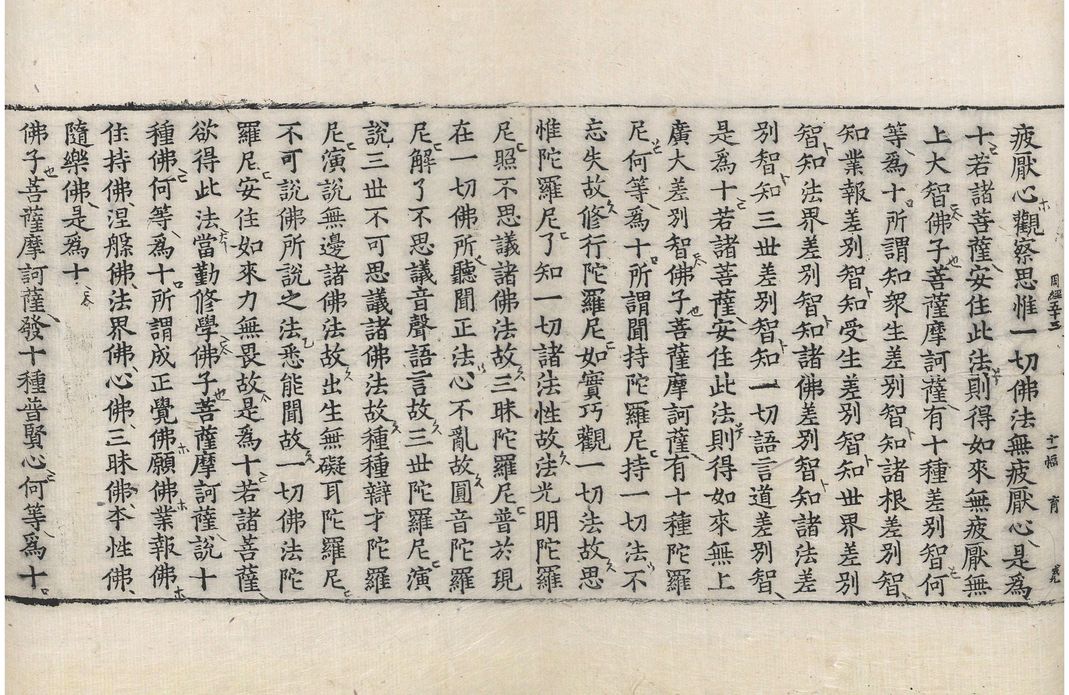 疲厭心觀察思惟一切佛法無疲厭心是爲
周經五十三 十一幅 育
十若諸菩薩安住此法則得如來無疲厭無
上大智佛子菩薩摩訶薩有十種差別智何
等爲十所謂知衆生差別智知諸根差別智
知業報差別智知受生差別智知世界差別
智知法界差別智知諸佛差別智知諸法差
別智知三世差別智知一切語言道差別智
是爲十若諸菩薩安住此法則得如來無上
廣大差別智佛子菩薩摩訶薩有十種陀羅
尼何等爲十所謂聞持陀羅尼持一切法不
忘失故修行陀羅尼如實巧觀一切法故思
惟陀羅尼了知一切諸法性故法光明陀羅
尼照不思議諸佛法故三昧陀羅尼普於現
在一切佛所聽聞正法心不亂故圓音陀羅
尼解了不思議音聲語言故三世陀羅尼演
說三世不可思議諸佛法故種種辯才陀羅
尼演說無邊諸佛法故出生無礙耳陀羅尼
不可說佛所說之法悉能聞故一切佛法陀
羅尼安住如來力無畏故是爲十若諸菩薩
欲得此法當勤修學佛子菩薩摩訶薩說十
種佛何等爲十所謂成正覺佛願佛業報佛
住持佛涅槃佛法界佛心佛三昧佛本性佛
隨樂佛是爲十
佛子菩薩摩訶薩發十種普賢心何等爲十